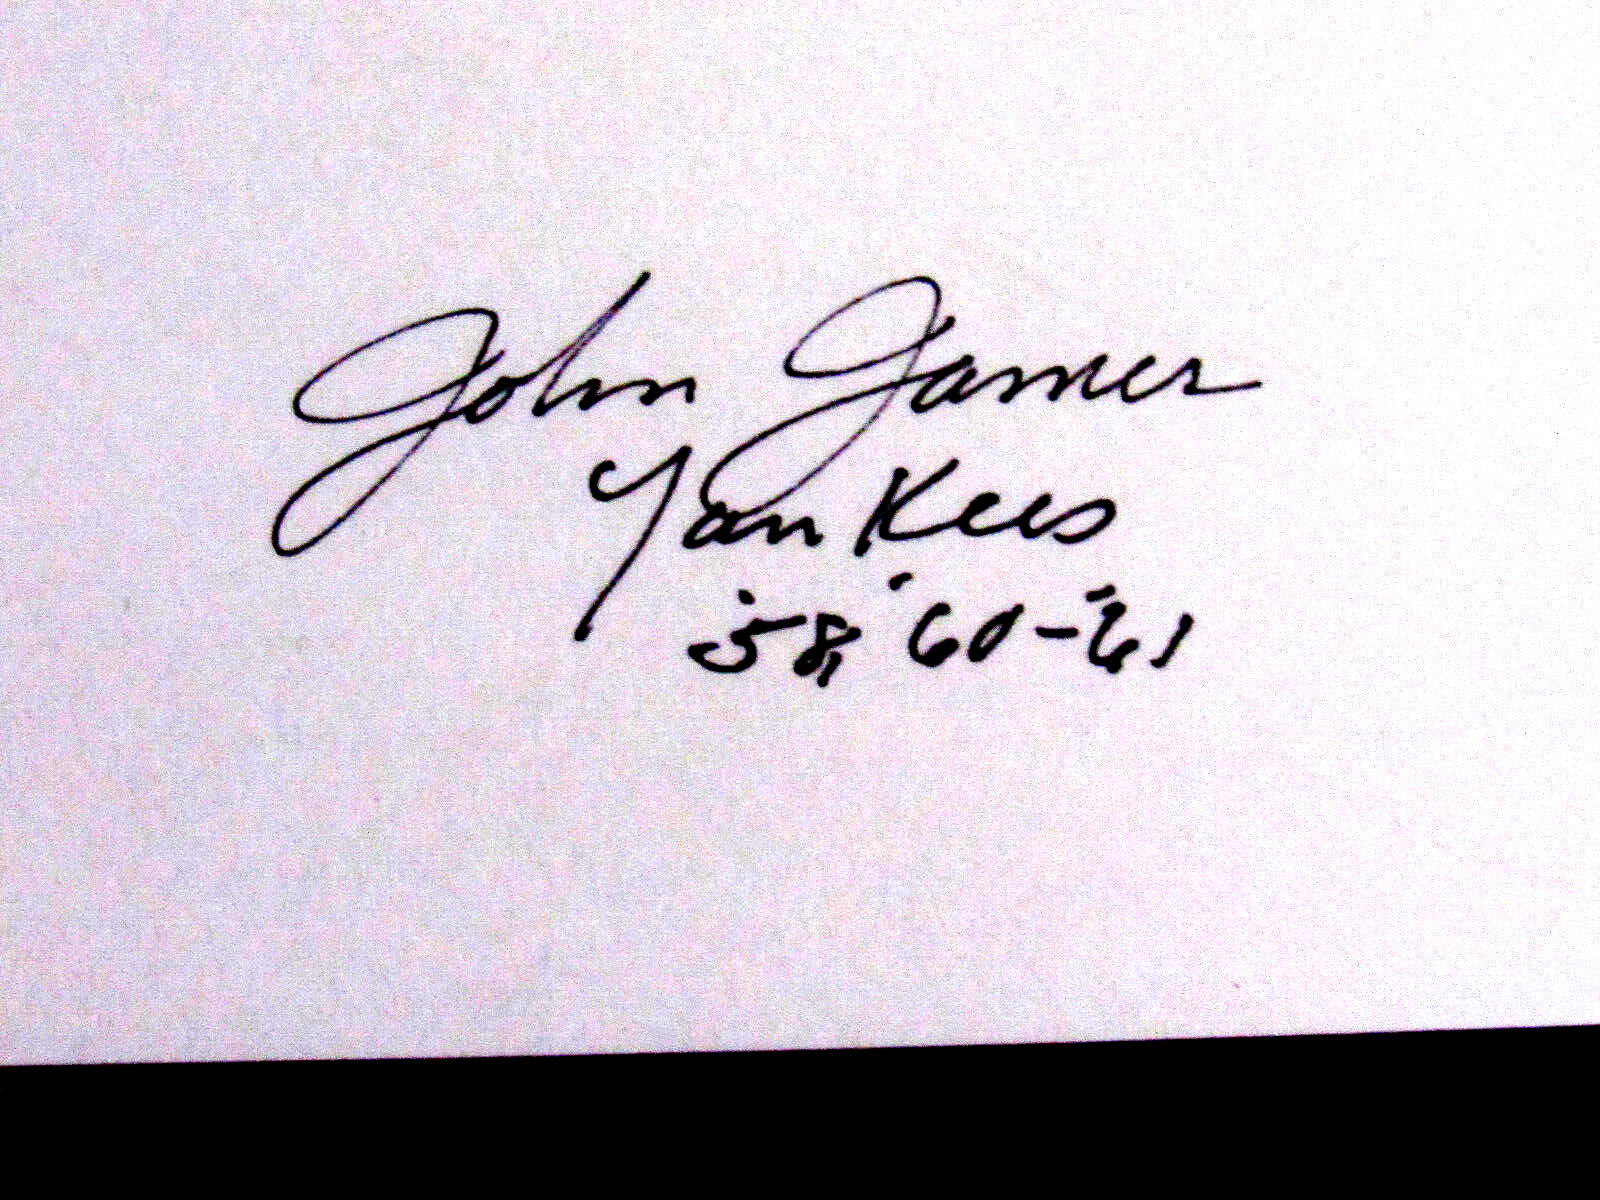 John James
Yankees
'58, '60-'61